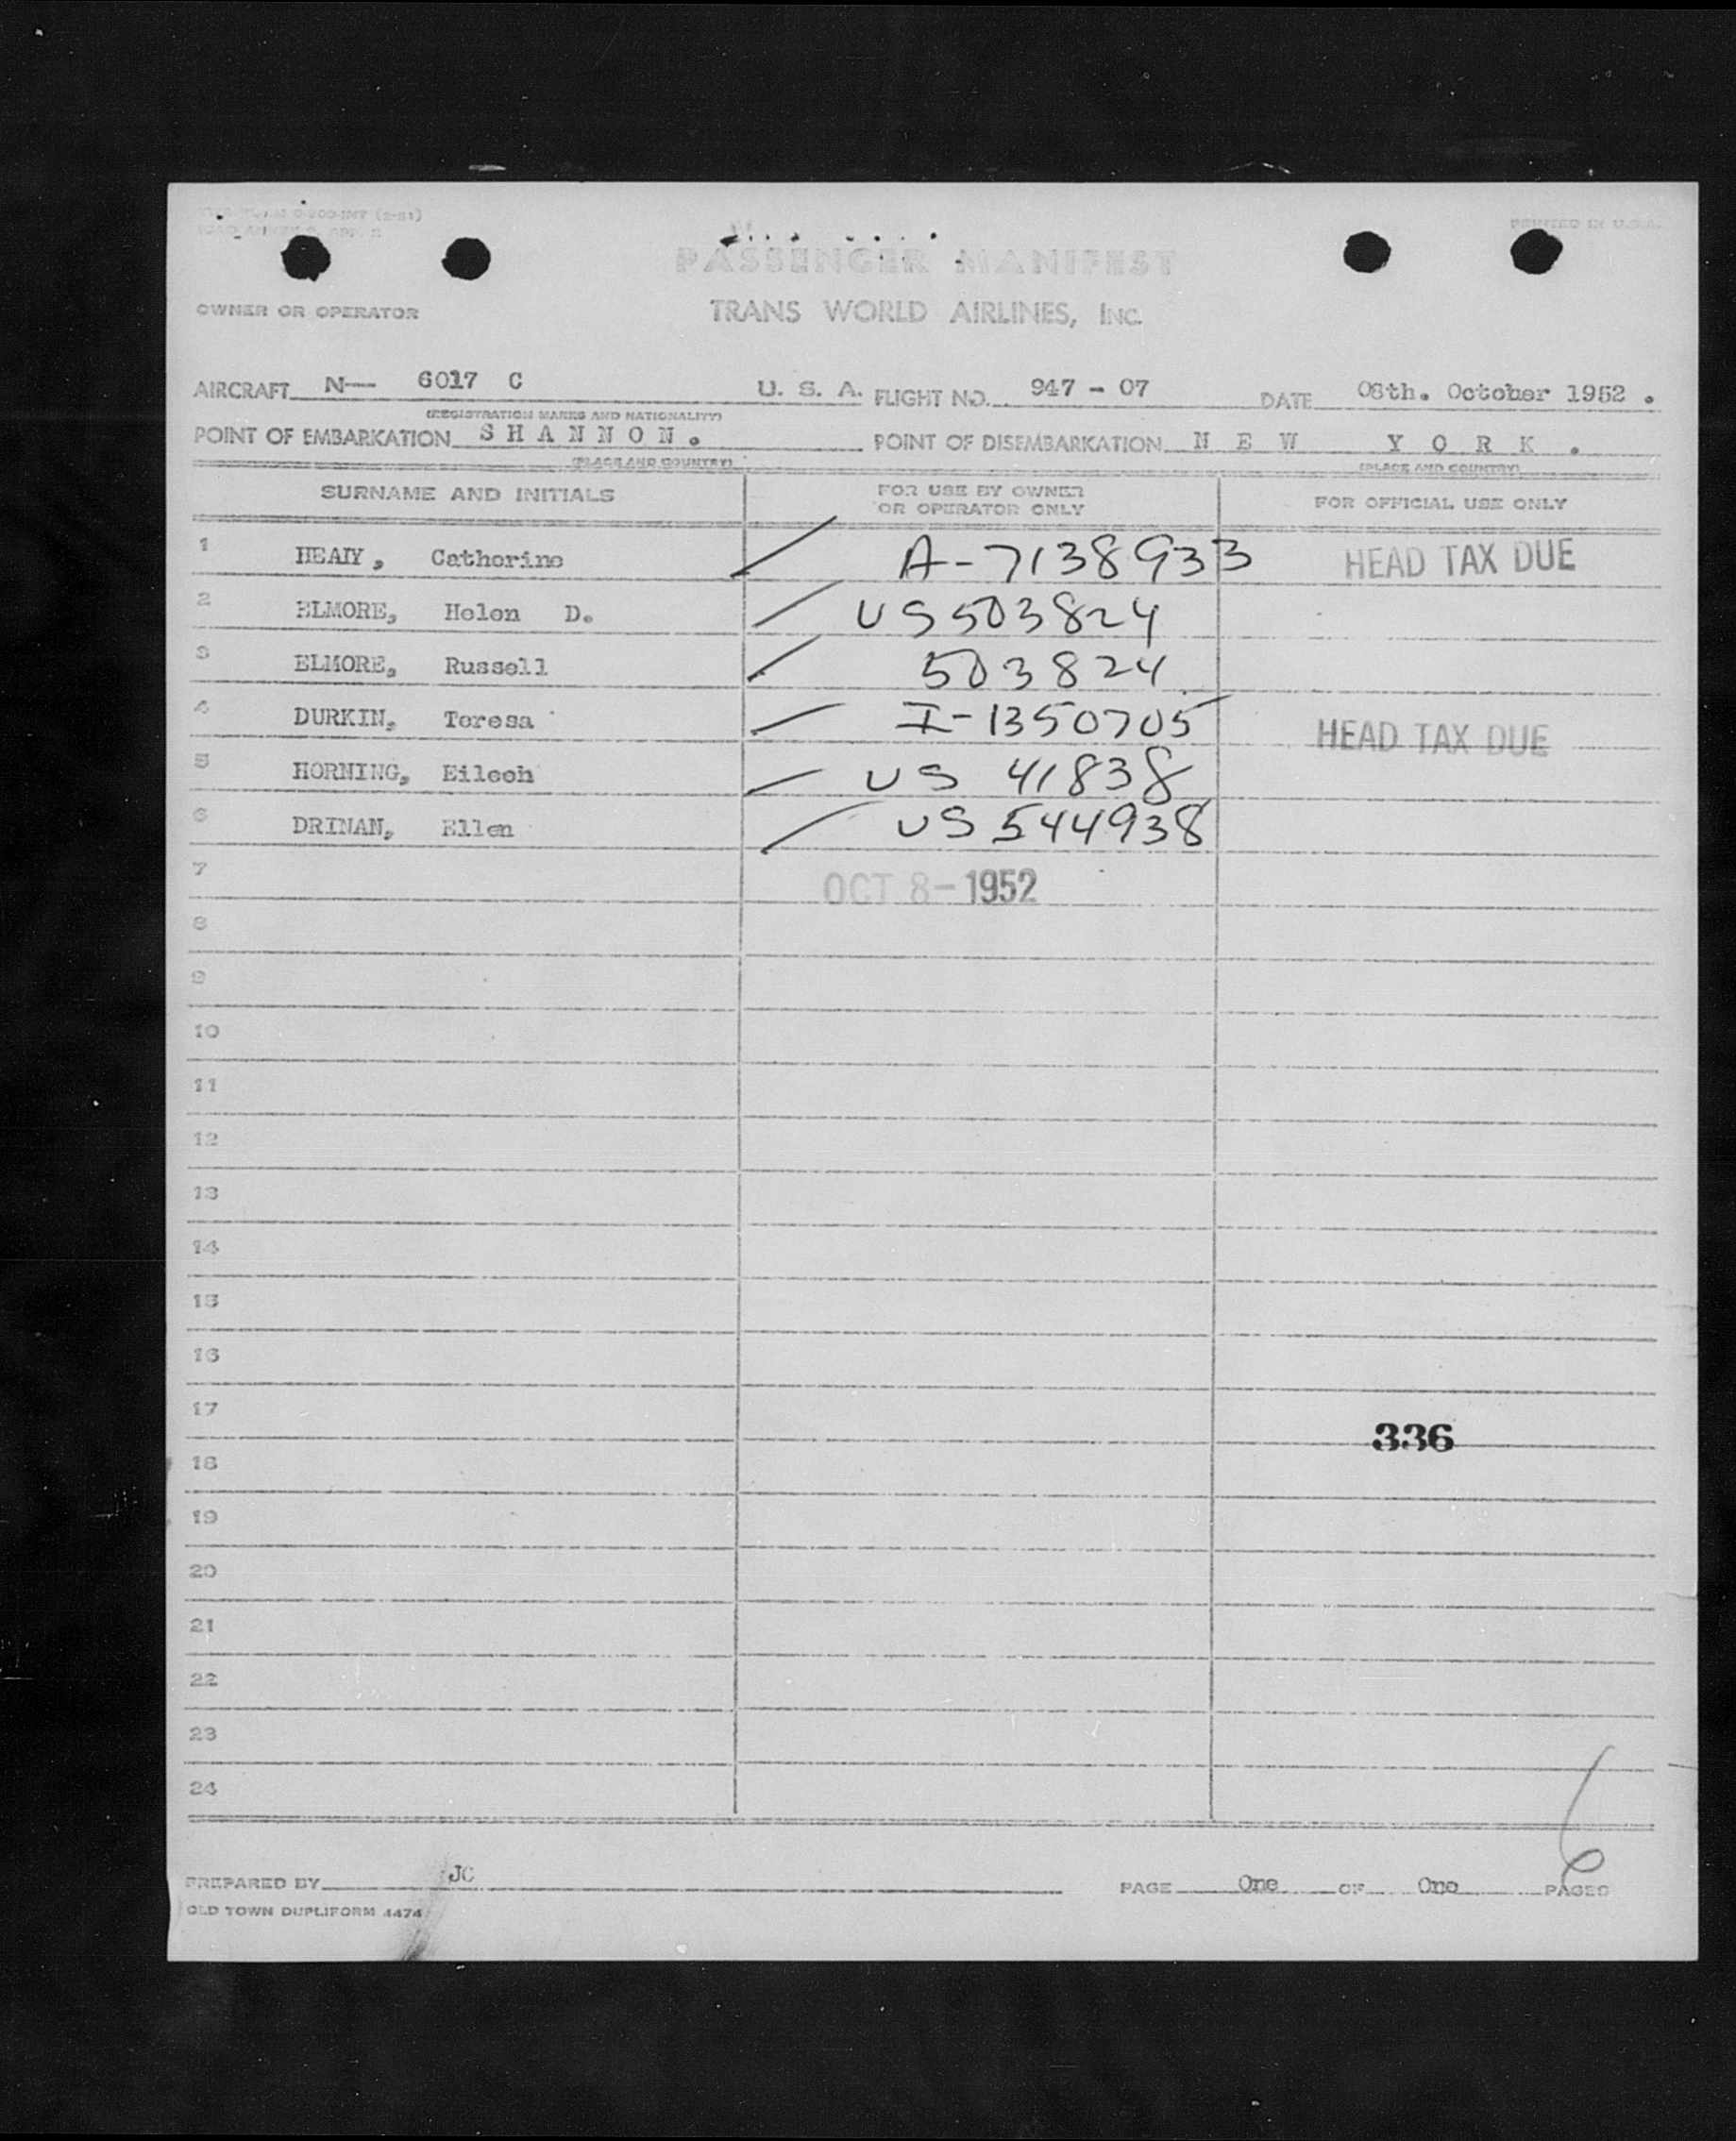 PRINTED IN U.S.A.
PASSENGER MANIFEST
OWNER OR OPERATOR TRANS WORLD AIRLINES, INC.
AIRCRAFT N— 6017 C U. S. A. FLIGHT NO. 947 - 07 DATE 08th. October 1952 .
(REGISTRATION MARKS AND NATIONALITY)
POINT OF EMBARKATION S H A N N O N . POINT OF DISEMBARKATION N E W Y O R K .
(PLACE AND COUNTRY) (PLACE AND COUNTRY)
SURNAME AND INITIALS FOR USE BY OWNER OR OPERATOR ONLY FOR OFFICIAL USE ONLY
1 HEALY, Catherine A-7138933 HEAD TAX DUE
2 ELMORE, Helen D. US 503824
3 ELMORE, Russell 503824
4 DURKIN, Teresa I-1350705 HEAD TAX DUE
5 HORNING, Eileen US 41838
6 DRINAN, Ellen US 544938
7 OCT 8-1952
8
9
10
11
12
13
14
15
16
17 336
18
19
20
21
22
23
24
6
PREPARED BY JC PAGE One OF One PAGES
OLD TOWN DUPLIFORM 4474